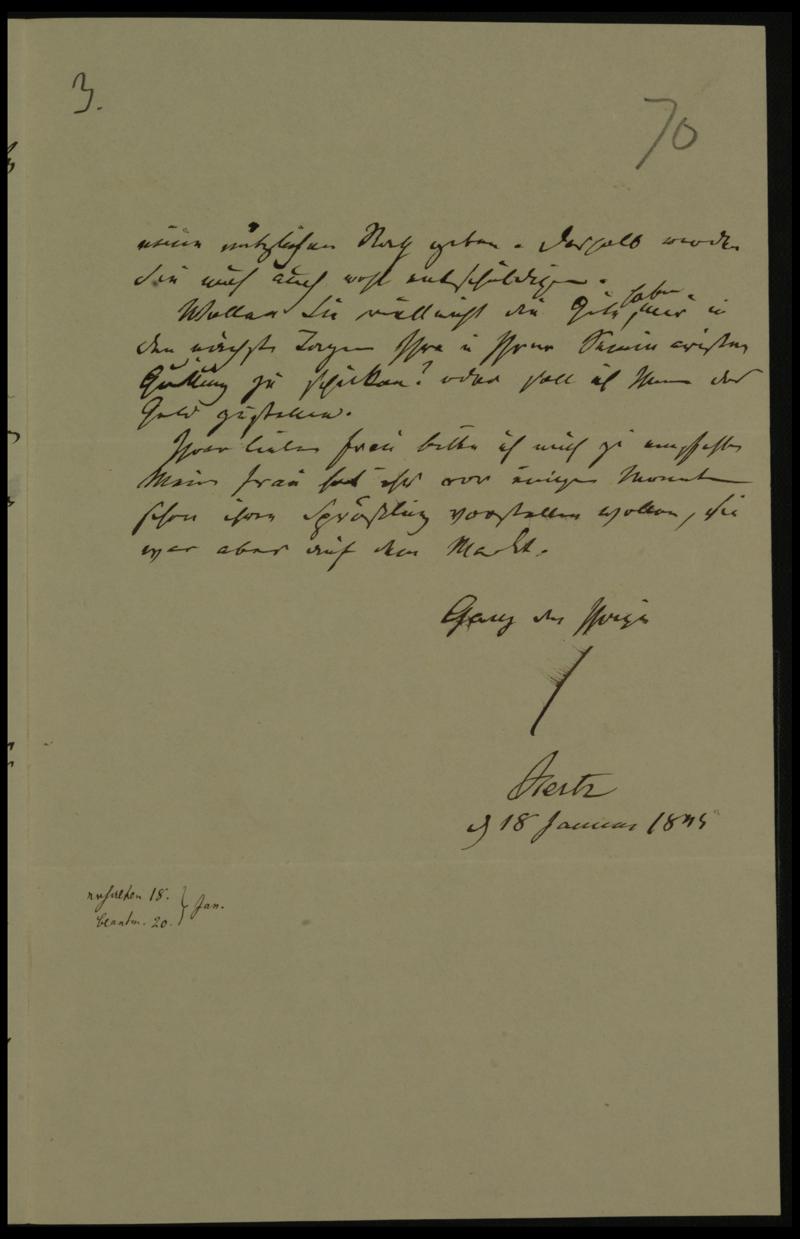 3.
70
einen nützlichen Rath geben. Deshalb werden
Sie mich auch wohl entschuldigen.
Wollen Sie vielleicht die Güte haben, mir in
den nächsten Tagen Ihre u Ihrer
Quittung zu schicken? oder soll ich Ihnen das
Geld zustellen.
Ihrer lieben Frau bitte ich mich zu empfehlen
Meine Frau hat ihr vor einigen Monaten
schon ihren Sprößling vorstellen wollen, sie
war aber auf dem Markt.
Ganz der Ihrige
Hertz
d 18 Januar
erhalten 18. } Jan.
beantw. 20.